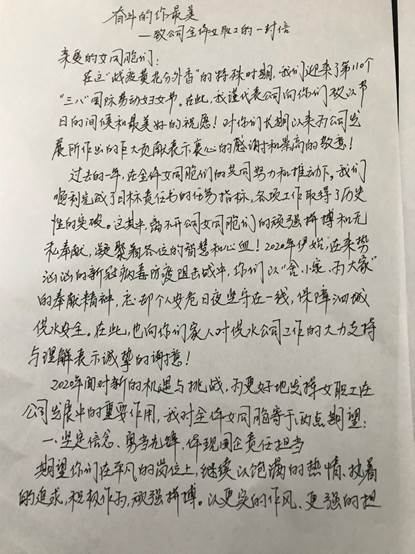 奋斗的你最美
—致公司全体女职工的一封信
亲爱的女同胞们：
在这“战疫黄花分外香”的特殊时期，我们迎来了第110个
“三八”国际劳动妇女节。在此，我谨代表公司向你们致以节
日的问候和最美好的祝愿！对你们长期以来为公司发
展所作出的巨大贡献表示衷心的感谢和崇高的敬意！
过去的一年，在全体女同胞们的共同努力和推动下，我们
顺利完成了目标责任书的任务指标，各项工作取得了历史
性的突破。这其中，离不开公司女同胞们的顽强拼搏和无
私奉献，凝聚着各位的智慧和心血！2020年伊始，在来势
汹汹的新冠病毒防疫阻击战中，你们以“舍小家，为大家”
的奉献精神，忘却个人安危日夜坚守在一线，保障泗城
供水安全。在此，也向你们家人对供水公司工作的大力支持
与理解表示诚挚的谢意！
2020年面对新的机遇与挑战，为更好地发挥女职工在
公司发展中的重要作用，我对全体女同胞寄于两点期望：
一、坚定信念、勇当先锋，体现国企责任担当
期望你们在平凡的岗位上，继续以饱满的热情、执着
的追求，积极作为，顽强拼搏。以更实的作风、更强的担